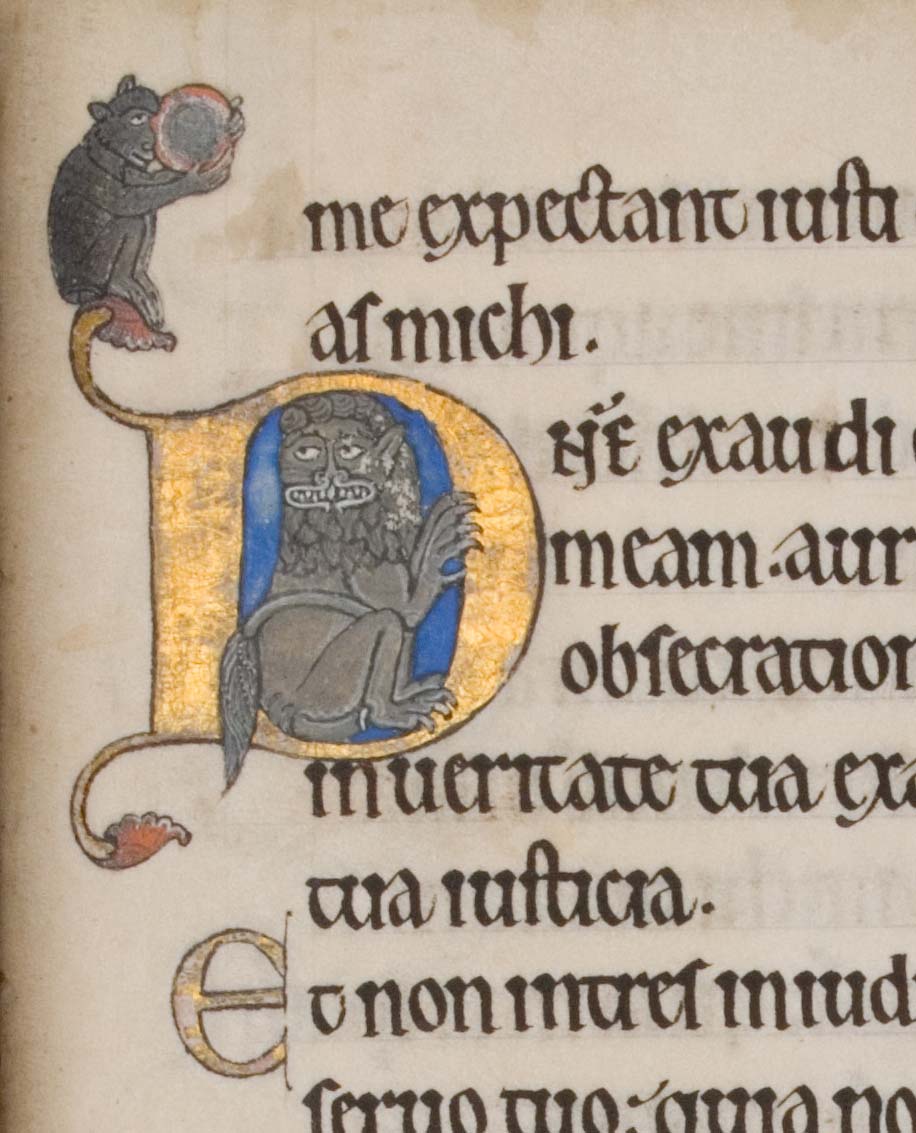 me expectant iusti
as michi.
D
ñe exaudi
meam. aur
obsecration
in ueritate tua exa
tua iusticia.
Et non intres in iudi
seruo tuo; quia no